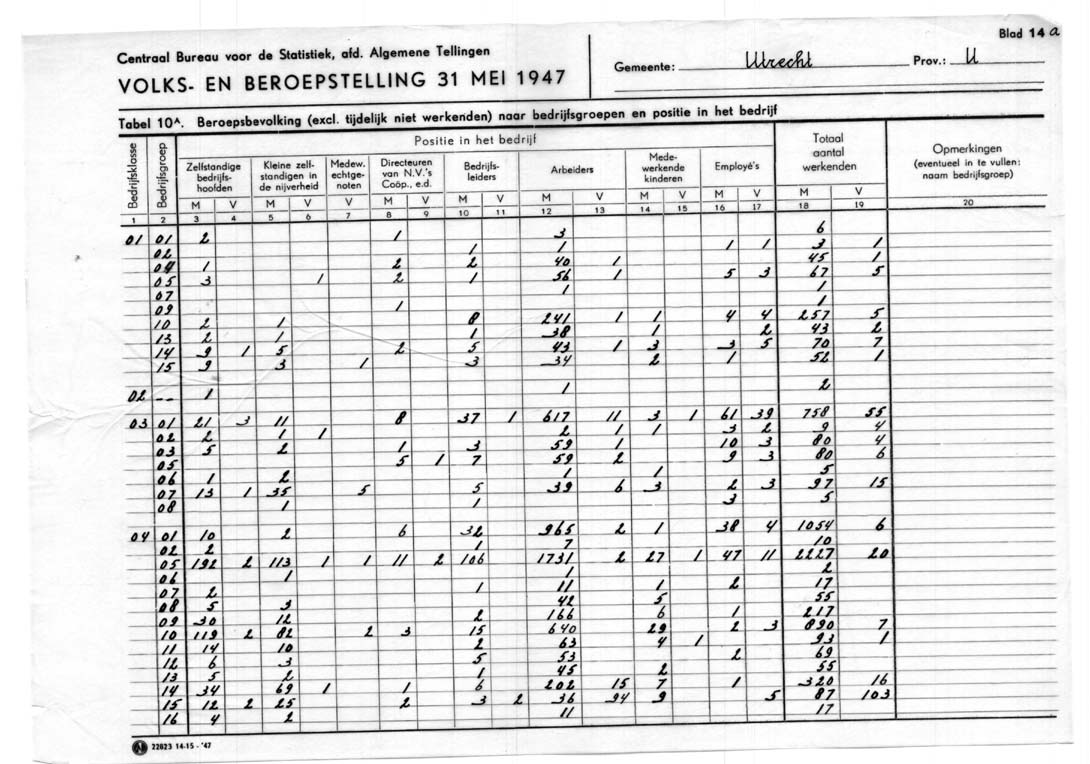 Blad 14 a
Centraal Bureau voor de Statistiek, afd. Algemene Tellingen
VOLKS- EN BEROEPSTELLING 31 MEI 1947
Gemeente: Utrecht Prov.: U
Tabel 10A. Beroepsbevolking (excl. tijdelijk niet werkenden) naar bedrijfsgroepen en positie in het bedrijf
Bedrijfsklasse Bedrijfsgroep Positie in het bedrijf Totaal aantal werkenden Opmerkingen (eventueel in te vullen: naam bedrijfsgroep)
Zelfstandige bedrijfs- hoofden Kleine zelf- standigen in de nijverheid Medew. echtge- noten Directeuren van N.V.'s Coöp., e.d. Bedrijfs- leiders Arbeiders Mede- werkende kinderen Employé's
M V M V V M V M V M V M V M V M V
1 2 3 4 5 6 7 8 9 10 11 12 13 14 15 16 17 18 19 20
01 01 2 1 3 6
02 1 1 1 1 3 1
04 1 2 2 40 1 45 1
05 3 1 2 1 56 1 5 3 67 5
07 1 1
09 1 1
10 2 1 8 241 1 1 4 4 257 5
13 2 1 1 38 1 2 43 2
14 9 1 5 2 5 43 1 3 3 5 70 7
15 9 3 1 3 34 2 1 52 1
02 -- 1 1 2
03 01 21 3 11 8 37 1 617 11 3 1 61 39 758 55
02 2 1 1 2 1 1 3 2 9 4
03 5 2 1 3 59 1 10 3 80 4
05 5 1 7 59 2 9 3 80 6
06 1 2 1 1 5
07 13 1 35 5 5 39 6 3 2 3 97 15
08 1 1 3 5
04 01 10 2 6 32 965 2 1 38 4 1054 6
02 2 1 7 10
05 192 2 113 1 1 11 2 106 1731 2 27 1 47 11 2227 20
06 1 1 2
07 2 1 11 1 2 17
08 5 3 42 5 55
09 30 12 2 166 6 1 217
10 119 2 82 2 3 15 640 29 2 3 890 7
11 14 10 2 63 4 1 93 1
12 6 3 5 53 2 69
13 5 2 1 45 2 55
14 34 69 1 1 6 202 15 7 1 320 16
15 12 2 25 2 3 2 36 94 9 5 87 103
16 4 2 11 17
22623 14-15 - '47